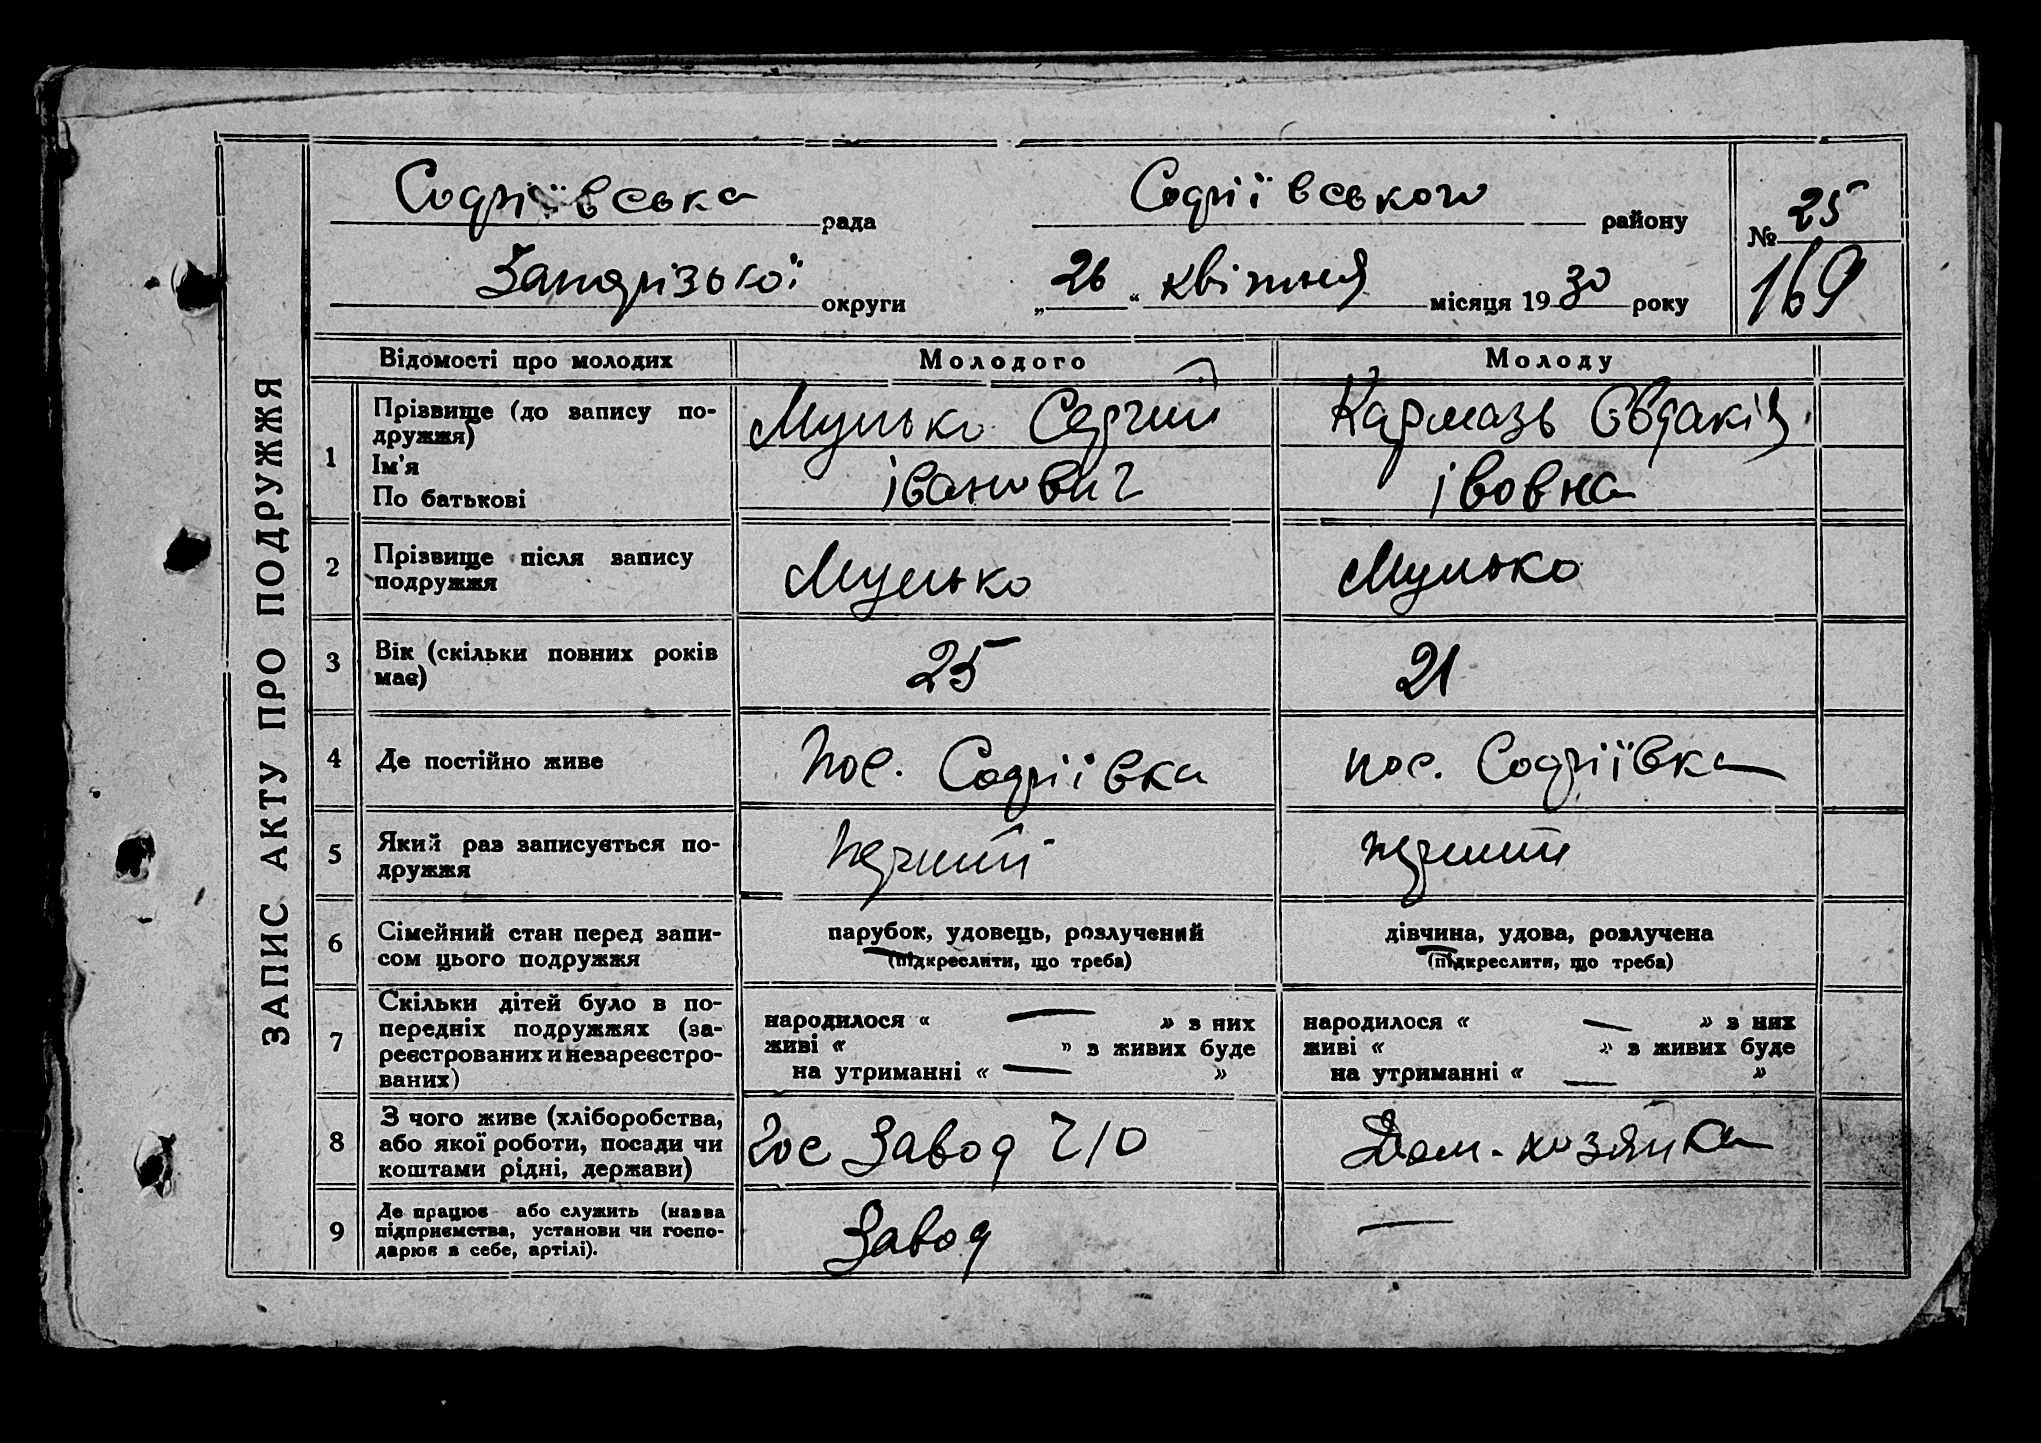 ЗАПИС АКТУ ПРО ПОДРУЖЖЯ
Софіївська рада Софіївського району № 25
Запорізької округи „26“ квітня місяця 1930 року 169
Відомості про молодих Молодого Молоду
1 Прізвище (до запису по- Мулько Сергий Кармазь Овдакія
дружжя)
Ім'я
По батькові івaнович івовна
2 Прізвище після запису Мулько Мулько
подружжя
3 Вік (скільки повних років 25 21
має)
4 Де постійно живе пос. Софіївка пос. Софіївка
5 Який раз записується по- перший перший
дружжя
6 Сімейний стан перед запи- парубок, удовець, розлучений дівчина, удова, розлучена
сом цього подружжя (підкреслити, що треба) (підкреслити, що треба)
7 Скільки дітей було в по- народилося « — » з них народилося « — » з них
передніх подружжях (за- живі « » з живих буде живі « » з живих буде
реєстрованих и незареєстро- на утриманні « — » на утриманні « — »
ваних)
8 З чого живе (хліборобства, Гос Завод 7/0 Дом-хозяйка
або якої роботи, посади чи
коштами рідні, держави)
9 Де працює або служить (назва Завод —
підприємства, установи чи госпо-
дарює в себе, артілі).